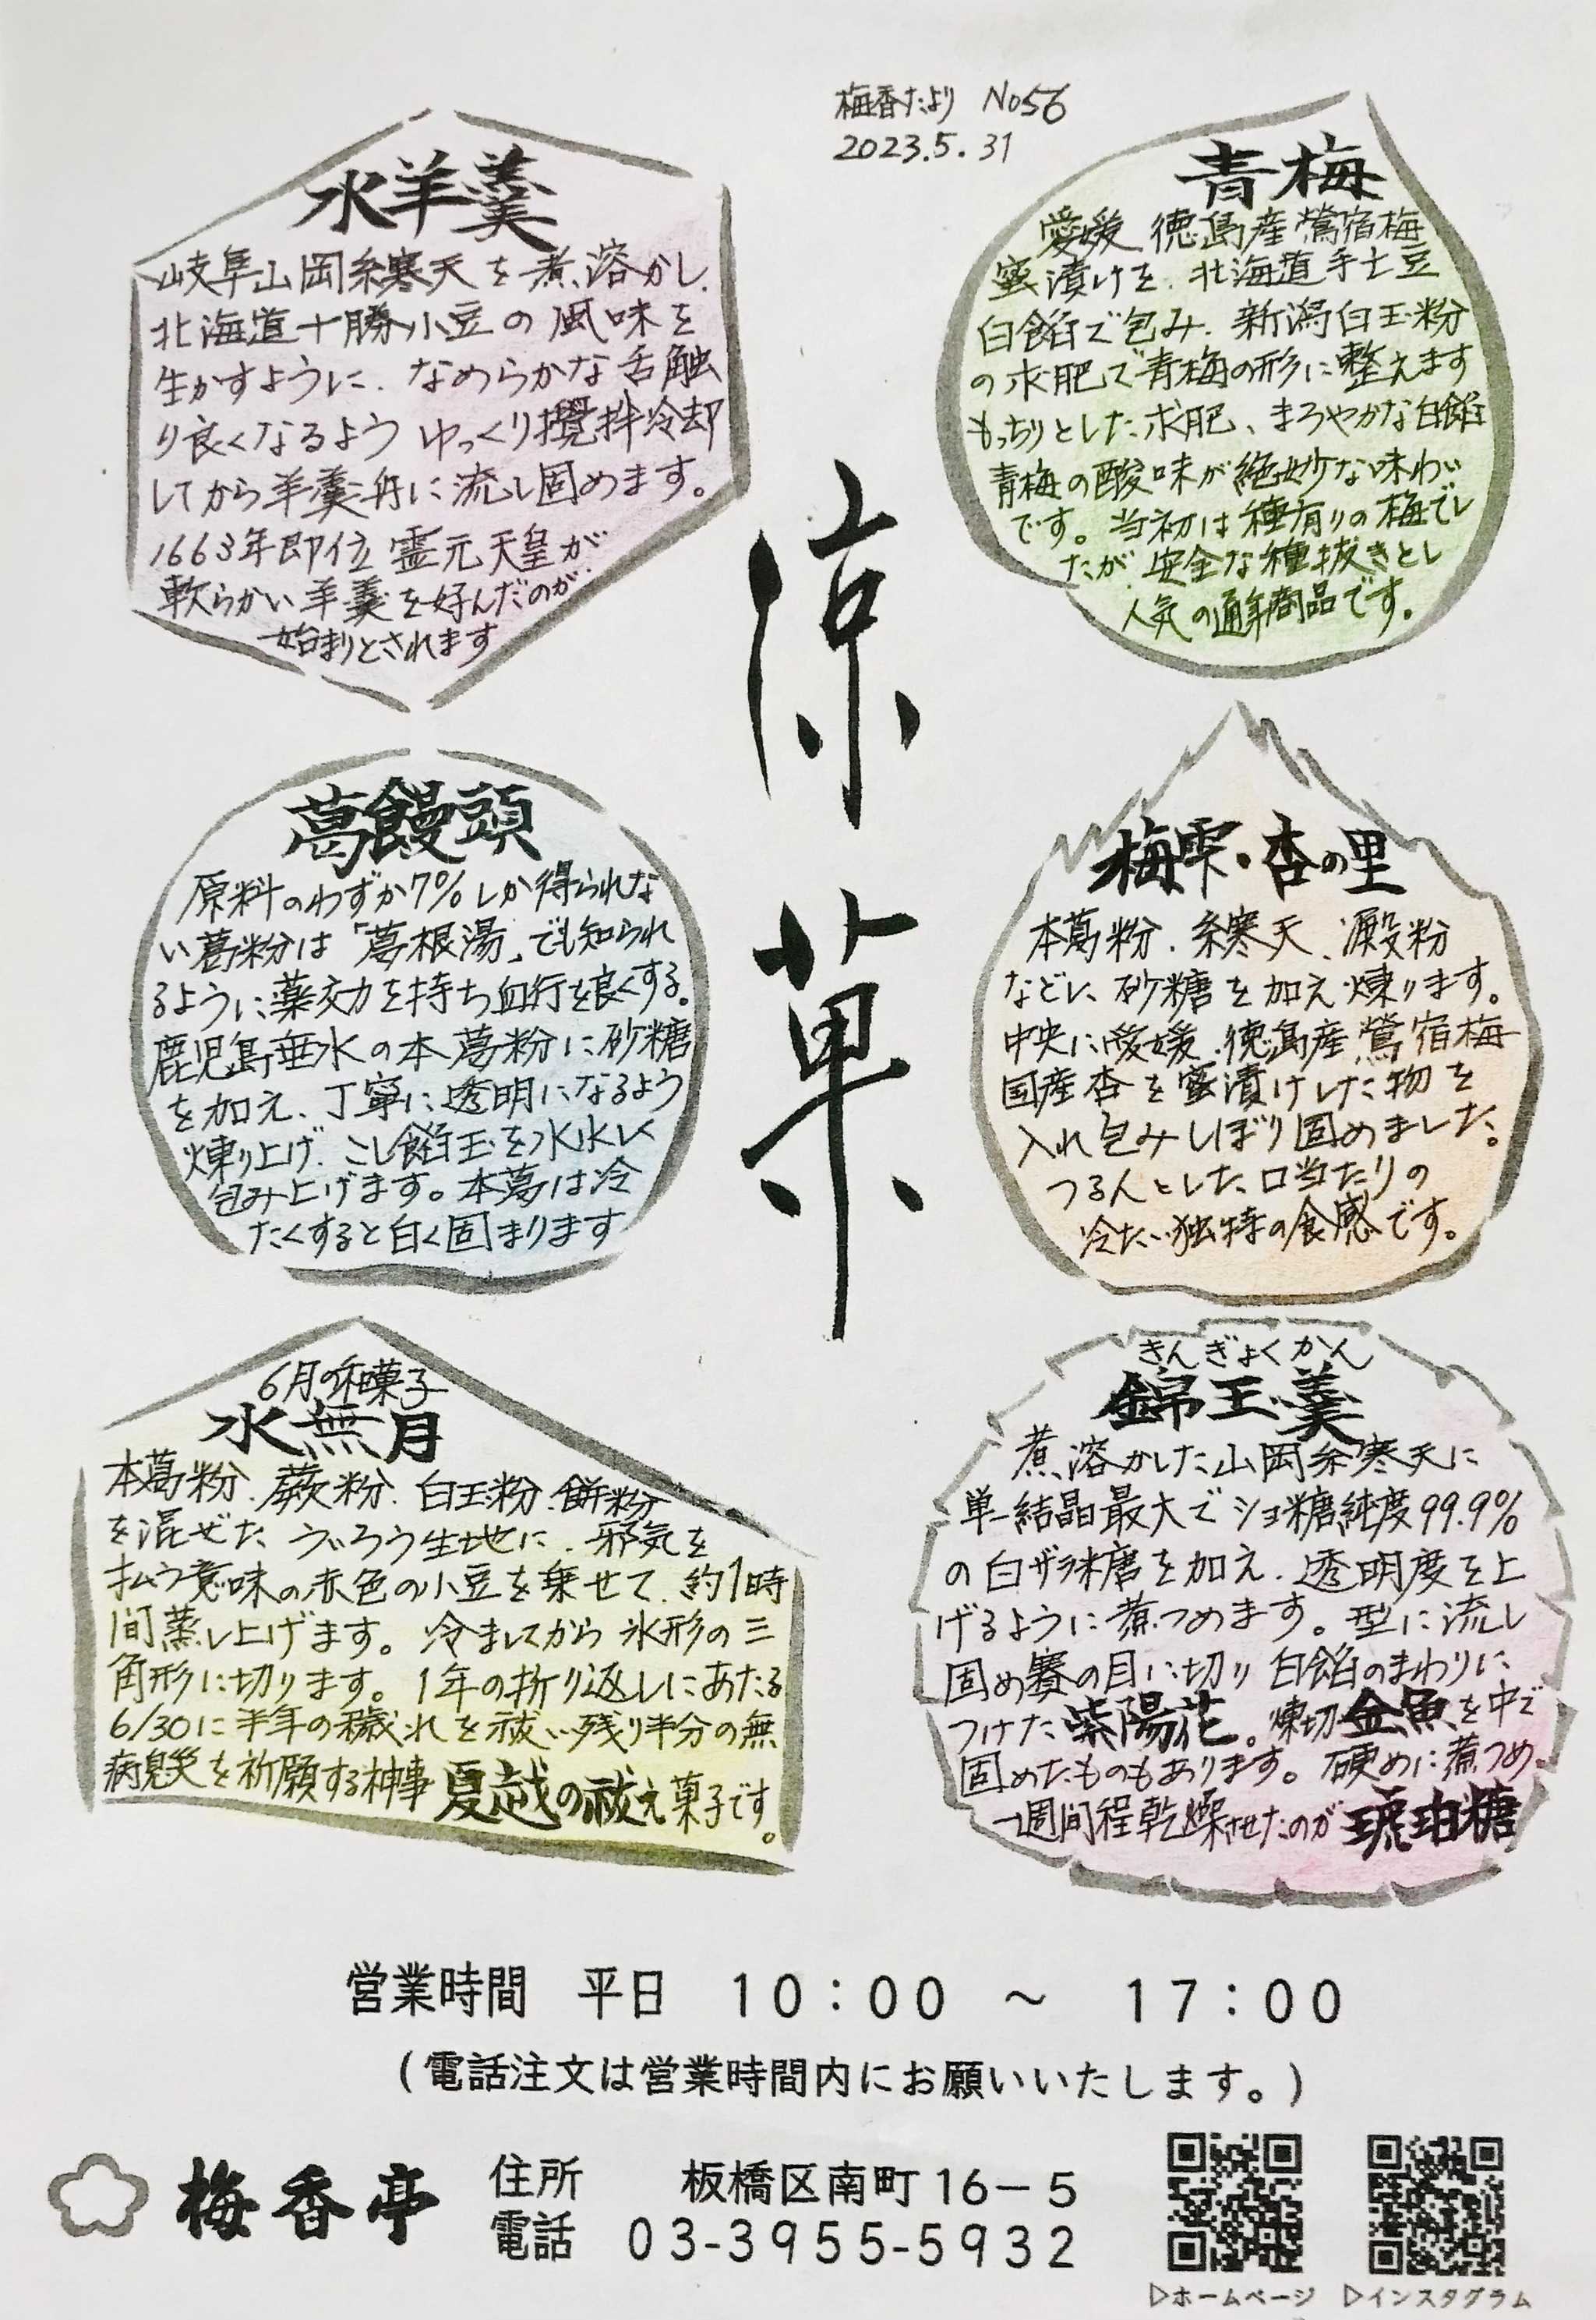 梅香だより No56
2023.5.31
涼菓
水羊羹
岐阜山岡糸寒天を煮溶かし、
北海道十勝小豆の風味を
生かすように、なめらかな舌触
り良くなるよう ゆっくり攪拌冷却
してから羊羹舟に流し固めます。
1663年即位 霊元天皇が
軟らかい羊羹を好んだのが
始まりとされます
青梅
愛媛、徳島産鶯宿梅
蜜漬けを、北海道手亡豆
白餡で包み、新潟白玉粉
の求肥で青梅の形に整えます
もっちりとした求肥、まろやかな白餡
青梅の酸味が絶妙な味わい
です。当初は種有りの梅でし
たが、安全な種抜きとし
人気の通年商品です。
葛饅頭
原料のわずか7%しか得られな
い葛粉は「葛根湯」でも知られ
るように薬効力を持ち血行を良くする。
鹿児島垂水の本葛粉に砂糖
を加え、丁寧に透明になるよう
煉り上げ、こし餡玉を水水しく
包み上げます。本葛は冷
たくすると白く固まります
梅雫・杏の里
本葛粉、糸寒天、澱粉
などに、砂糖を加え煉ります。
中央に愛媛、徳島産鶯宿梅
国産杏を蜜漬けした物を
入れ包みしぼり固めました。
つるんとした口当たりの
冷たい独特の食感です。
6月の和菓子
水無月
本葛粉、蕨粉、白玉粉、餅粉
を混ぜた ういろう生地に、邪気を
払う意味の赤色の小豆を乗せて、約1時
間蒸し上げます。冷ましてから 氷形の三
角形に切ります。1年の折り返しにあたる
6/30に半年の穢れを祓い残り半分の無
病息災を祈願する神事 夏越の祓え菓子です。
きんぎょくかん
錦玉羹
煮溶かした山岡糸寒天に
単一結晶最大でショ糖純度99.9%
の白ザラ糖を加え、透明度を上
げるように煮つめます。型に流し
固め賽の目に切り 白餡のまわりに
つけた紫陽花。煉切金魚を中で
固めたものもあります。硬めに煮つめ
一週間程乾燥させたのが琥珀糖
営業時間 平日 10:00 ～ 17:00
(電話注文は営業時間内にお願いいたします。)
梅香亭
住所 板橋区南町16－5
電話 03-3955-5932
▷ホームページ ▷インスタグラム